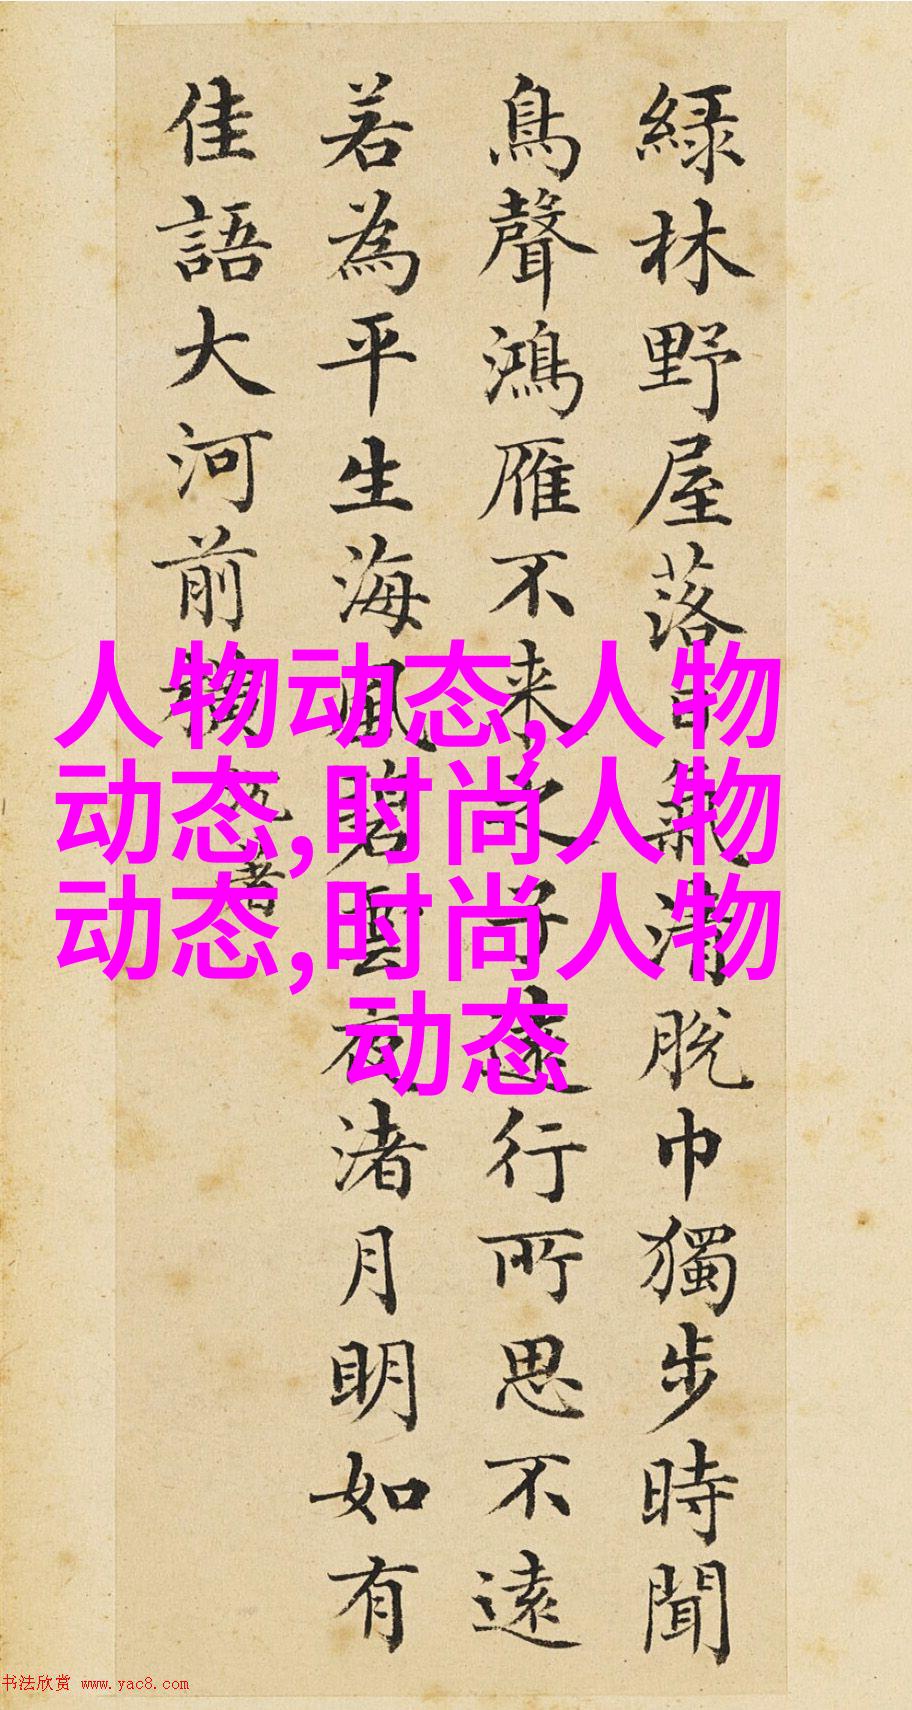 綠林野屋落日氣清脫巾獨步時聞
鳥聲鴻雁不来之子遠行所思不遠
若為平生海風碧雲夜渚月明如有
佳語大河前橫
沉著
人物动态,人物
动态,时尚人物
动态,时尚人物
动态
书法欣赏 www.yac8.com